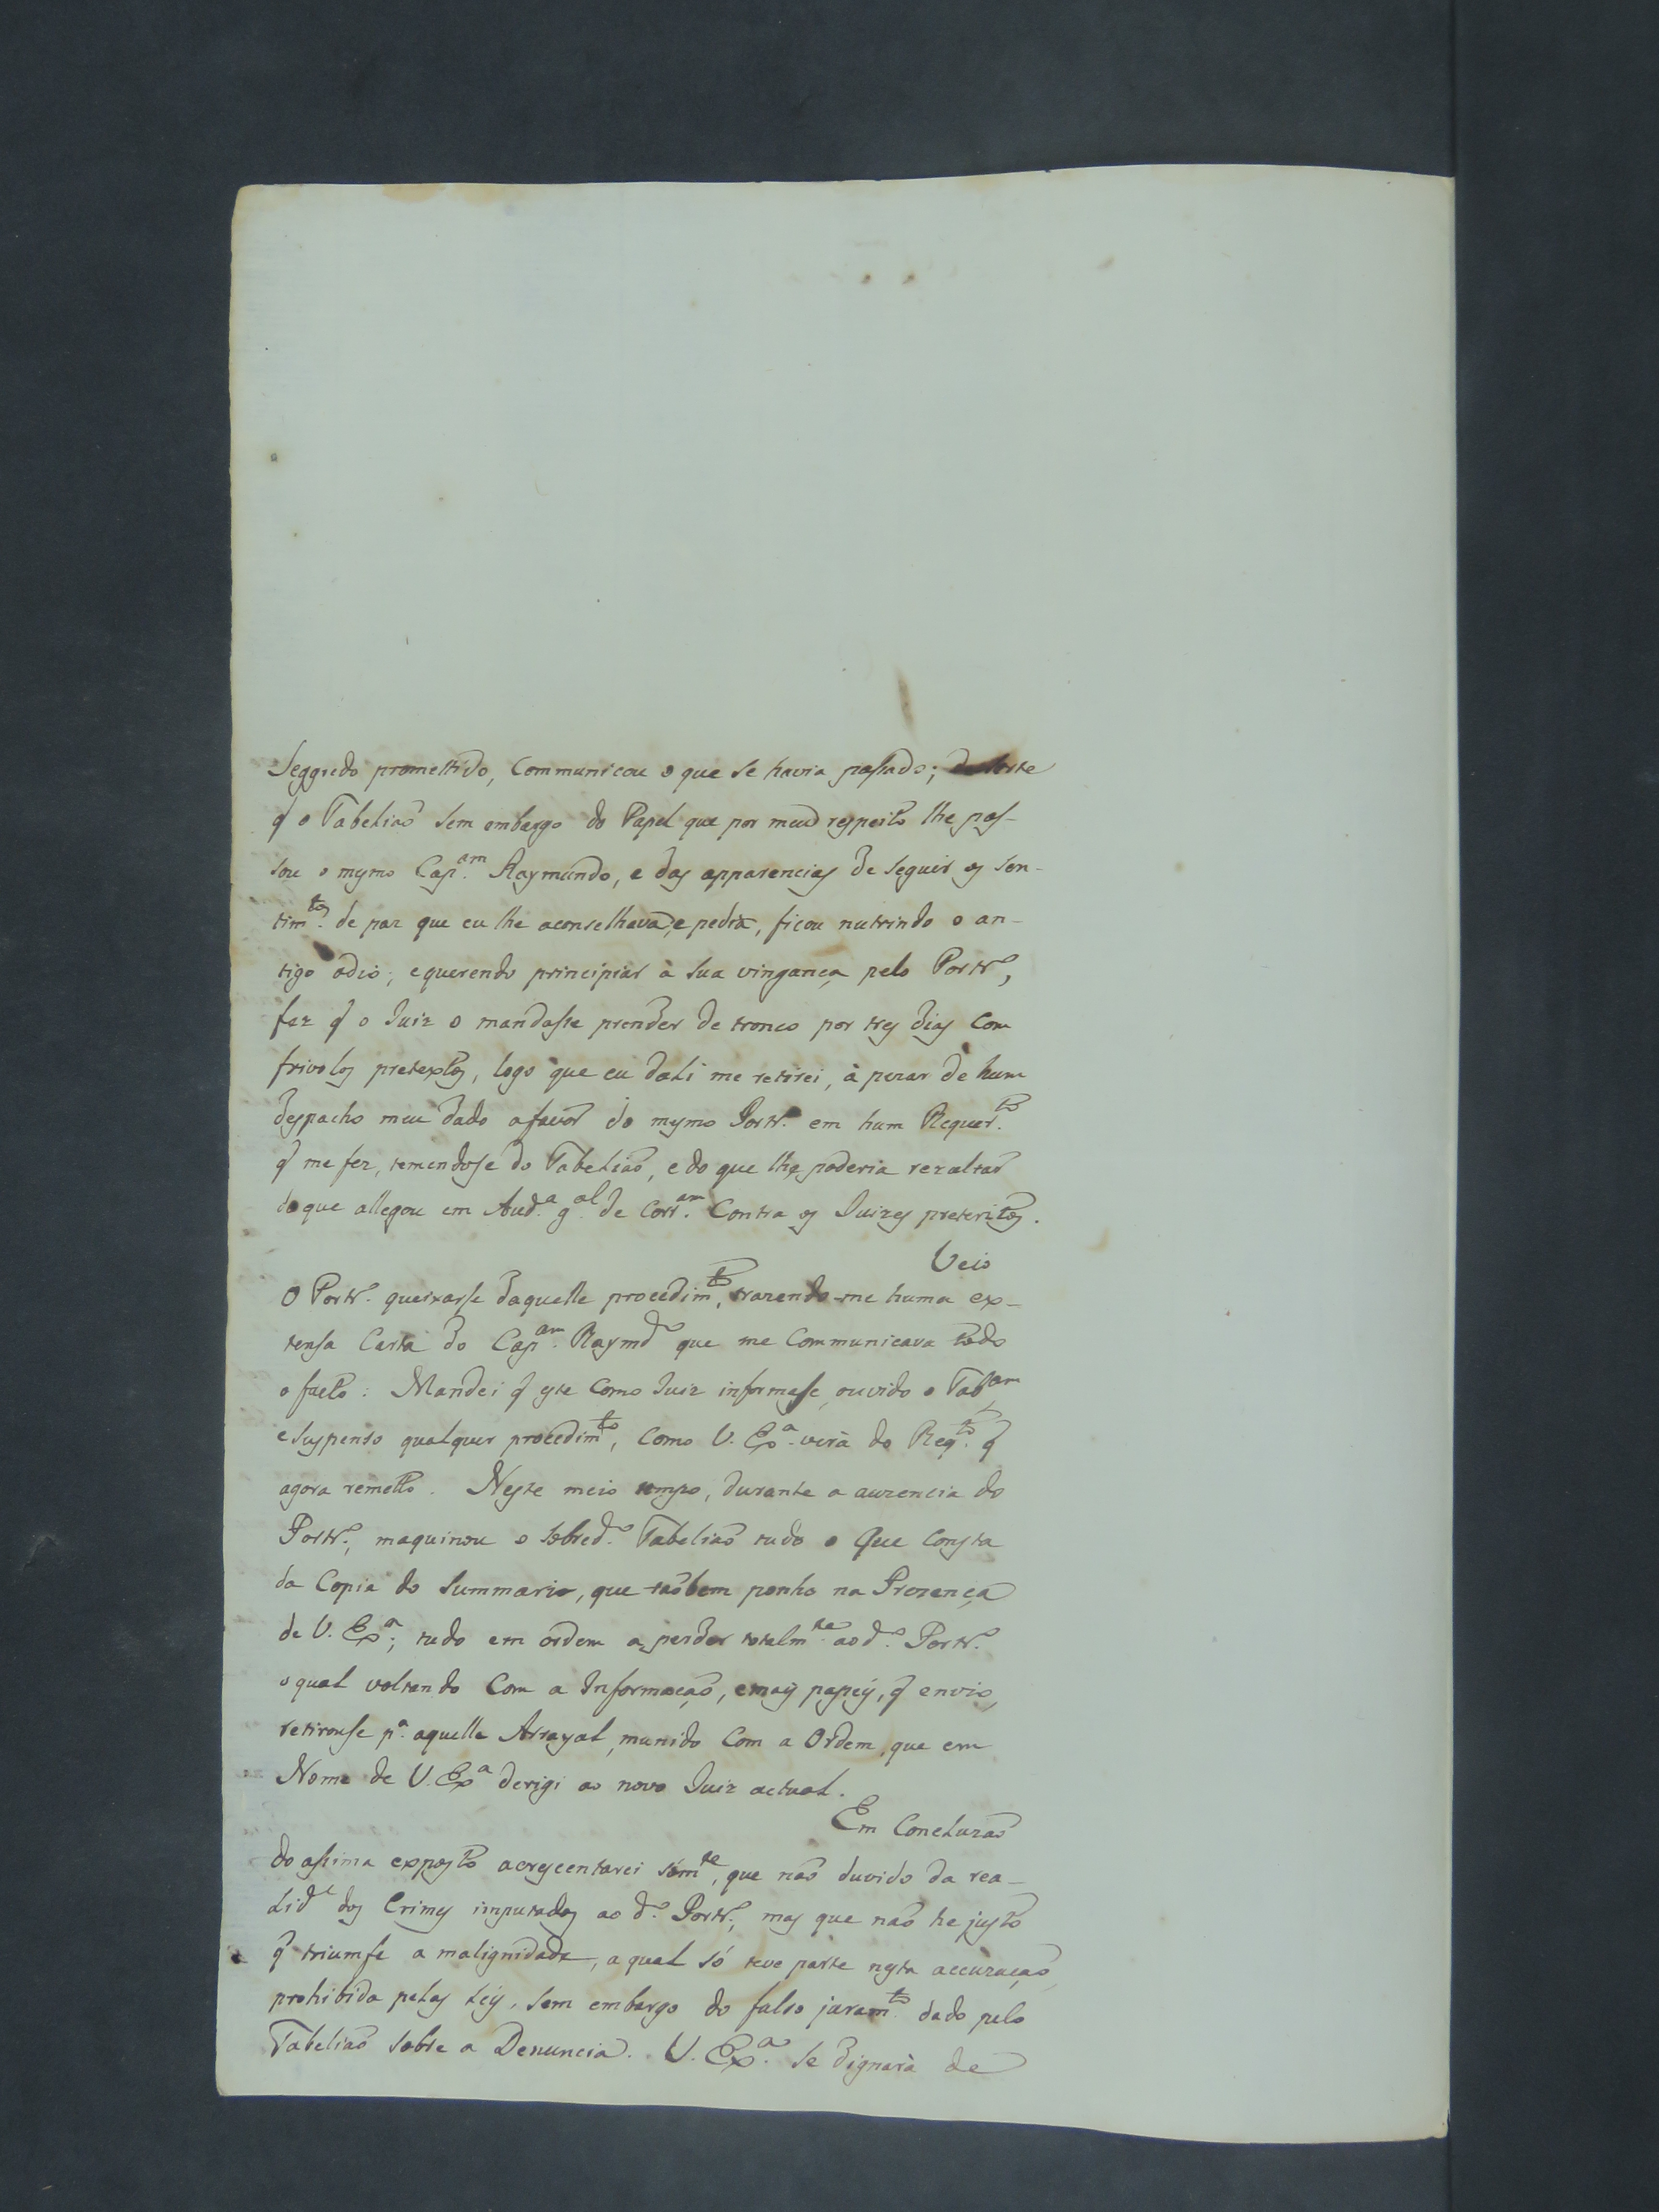 Seggredo promettido, Communicou o que se havia passado; de sorte
q̃ o Tabeliaõ sem embargo do Papel que por meu respeito lhe pas-
sou o mesmo Cap.am Raymundo, e das apparencias de seguir os sen-
tim.tos de paz que eu lhe aconselhava, e pedia, ficou nutrindo o an-
tigo odio; e querendo principiar à sua vingança pelo Portr.o,
fez q̃ o Juiz o mandasse prender de tronco por tres dias Com
frivolos pretextos, logo que eu dali me retirei, à pezar de hum
despacho meu dado a favor do mesmo Portr.o em hum Requer.to
q̃ me fez, temendose do Tabeliaõ, e do que lhe poderia rezultar
do que allegou em Aud.a g.al de Corr.am Contra os Juizes preteritos.
Veio
O Portr.o queixarse daquelle procedim.to, trazendo-me huma ex-
tensa Carta do Cap.am Raymd.o que me Communicava todo
o facto: Mandei q̃ este Como Juiz informase, ouvido o Tab.am
e suspenso qualquer procedim.to, Como V. Ex.a verà do Reqr.to q̃
agora remetto. Neste meio tempo, durante a auzencia do
Portr.o, maquinou o sobred.o Tabeliaõ tudo o Que Consta
da Copia do Summario, que taõbem ponho na Prezença
de V. Ex.a; tudo em ordem a perder totalm.te ao d.o Portr.o
o qual voltando Com a Informaçaõ, e mais papeis, q̃ envio,
retirouse p.a aquelle Arrayal, munido Com a Ordem, que em
Nome de V. Ex.a derigi ao novo Juiz actual.
Em Concluzaõ
do assima exposto acrescentarei sòm.te, que naõ duvido da rea-
lid.e dos Crimes imputados ao d.o Portr.o, mas que naõ he justo
q̃ triumfe a malignidade, a qual só teve parte nesta accuzaçaõ
prohibida pelas Leis, sem embargo do falso juram.to dado pelo
Tabeliaõ sobre a Denuncia. V. Ex.a se dignarà de